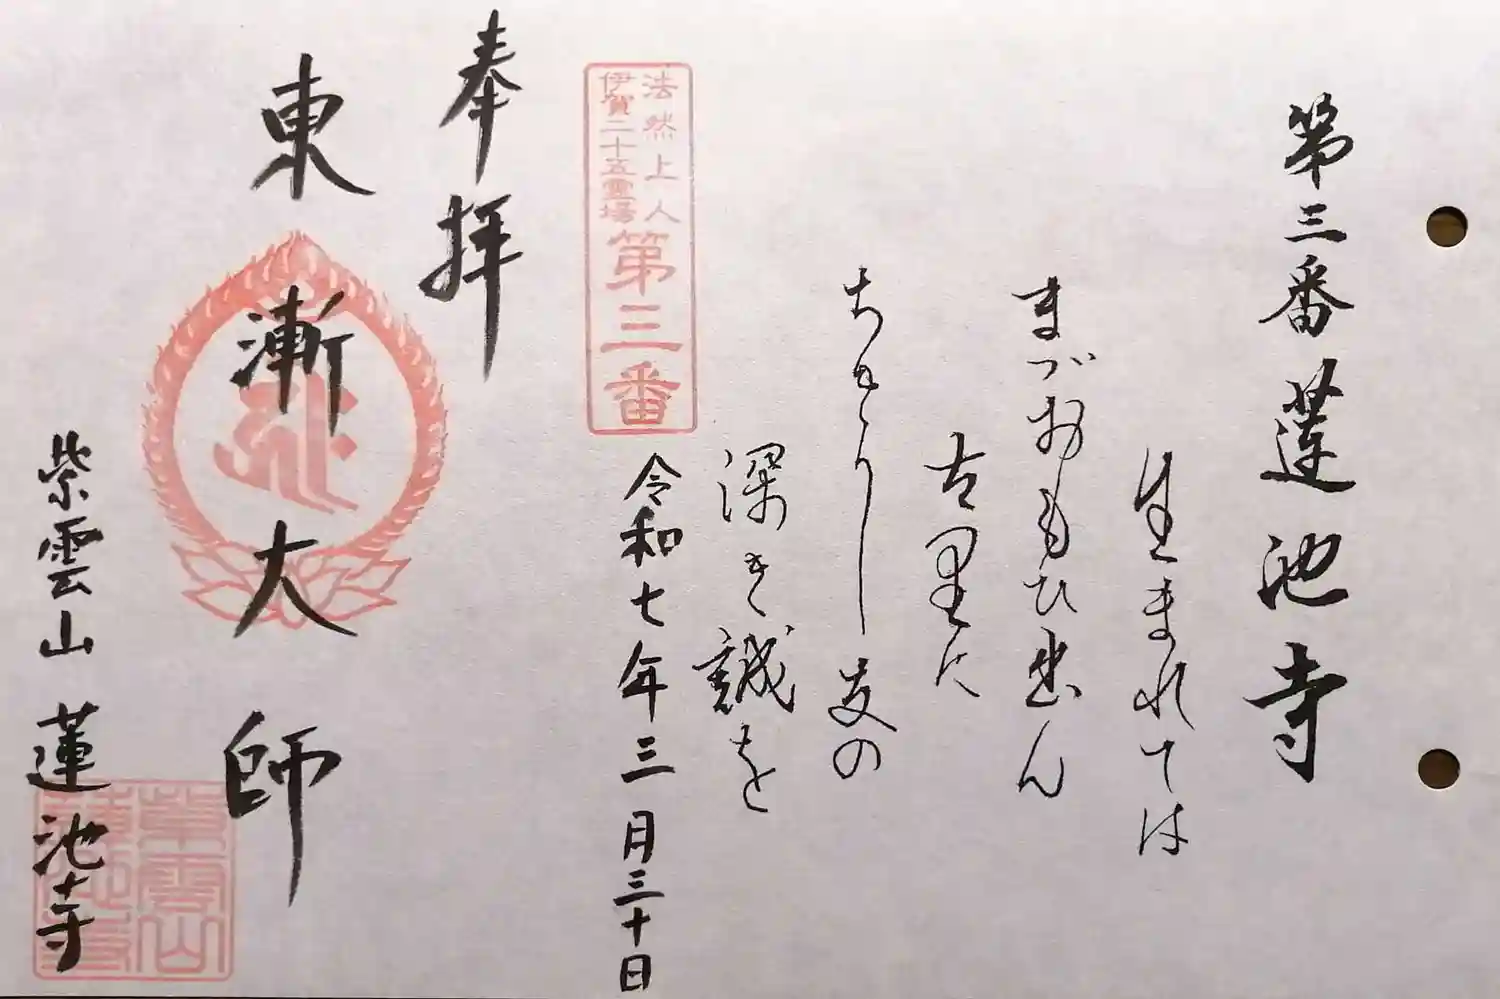 第三番 蓮池寺
生まれては
まづおもひ出ん
古里に
ちぎりし友の
深き誠を
法然上人
伊賀二十五霊場
第三番
令和七年三月三十日
奉拝
東漸大師
紫雲山 蓮池寺
紫雲山
蓮池寺